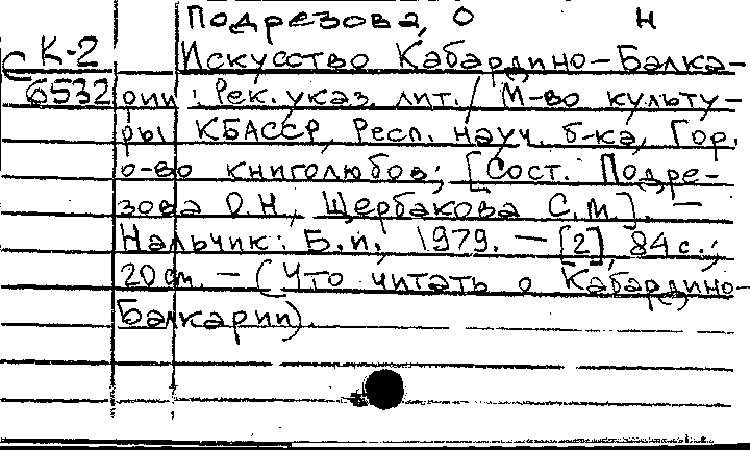 Подрезова, О Н
С К-2 Искусство Кабардино-Балка-
6532 рии : Рек. указ. лит. / М-во культу-
ры КБАССР, Респ. науч. б-ка, Гор.
о-во книголюбов; [Сост. Подре-
зова О.Н., Щербакова С.М.]. —
Нальчик: Б.и., 1979. — [2], 84 с.;
20 см. — (Что читать о Кабардино-
Балкарии).